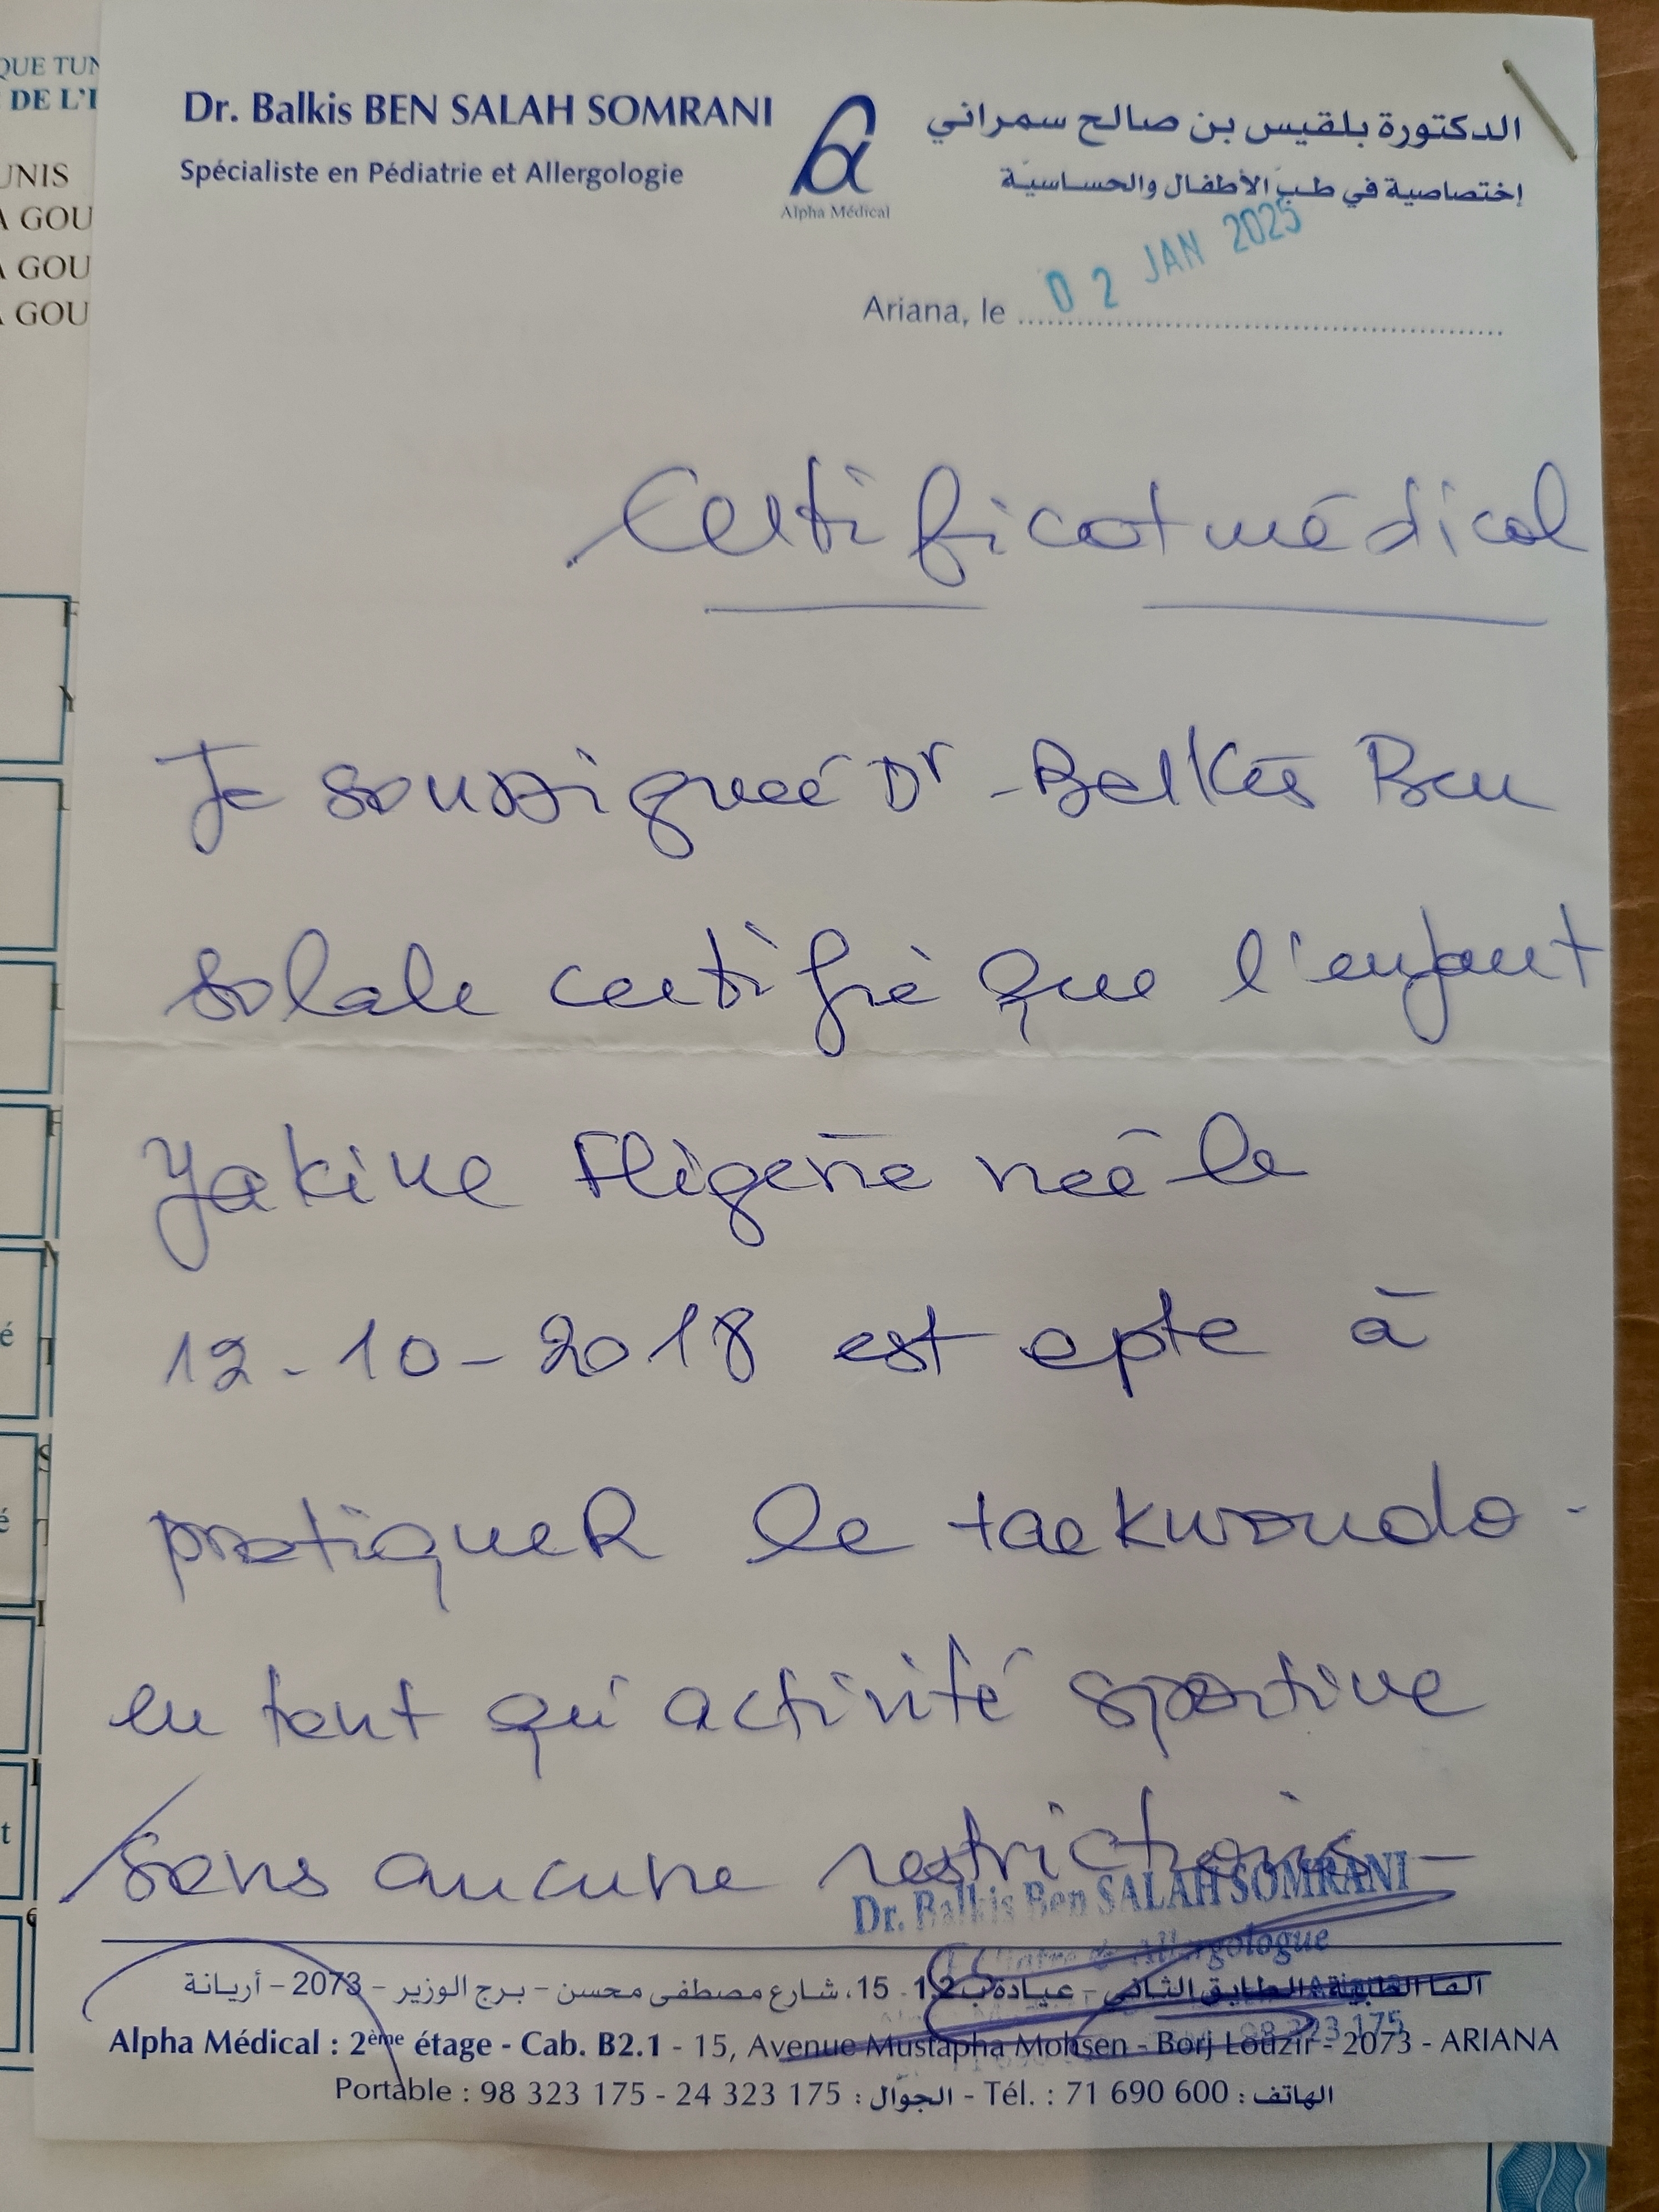 QUE TUN
DE L'I
UNIS
A GOU
A GOU
A GOU
Dr. Balkis BEN SALAH SOMRANI
Spécialiste en Pédiatrie et Allergologie
Alpha Médical
الدكتورة بلقيس بن صالح سمراني
إختصاصية في طب الأطفال والحساسية
Ariana, le 02 JAN 2025
Certificat médical
Je soussignée Dr Balkis Ben
Salah certifie que l'enfant
Yakine Fligene née le
12-10-2018 est apte à
pratiquer le taekwondo
en tant qu'activité sportive
sans aucune restrictions
Dr. Balkis Ben SALAH SOMRANI
Allergologue
98 323 175
الطابق الثاني – عيادة ب 1.2 - 15، شارع مصطفى محسن – برج الوزير – 2073 – أريانة
Alpha Médical : 2ème étage - Cab. B2.1 - 15, Avenue Mustapha Mohsen - Borj Louzir - 2073 - ARIANA
Portable : 98 323 175 - 24 323 175 : الجوّال - Tél. : 71 690 600 : الهاتف